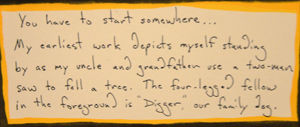 You have to start somewhere...
My earliest work depicts myself standing
by as my uncle and grandfather use a two-man
saw to fell a tree. The four-legged fellow
in the foreground is "Digger," our family dog.